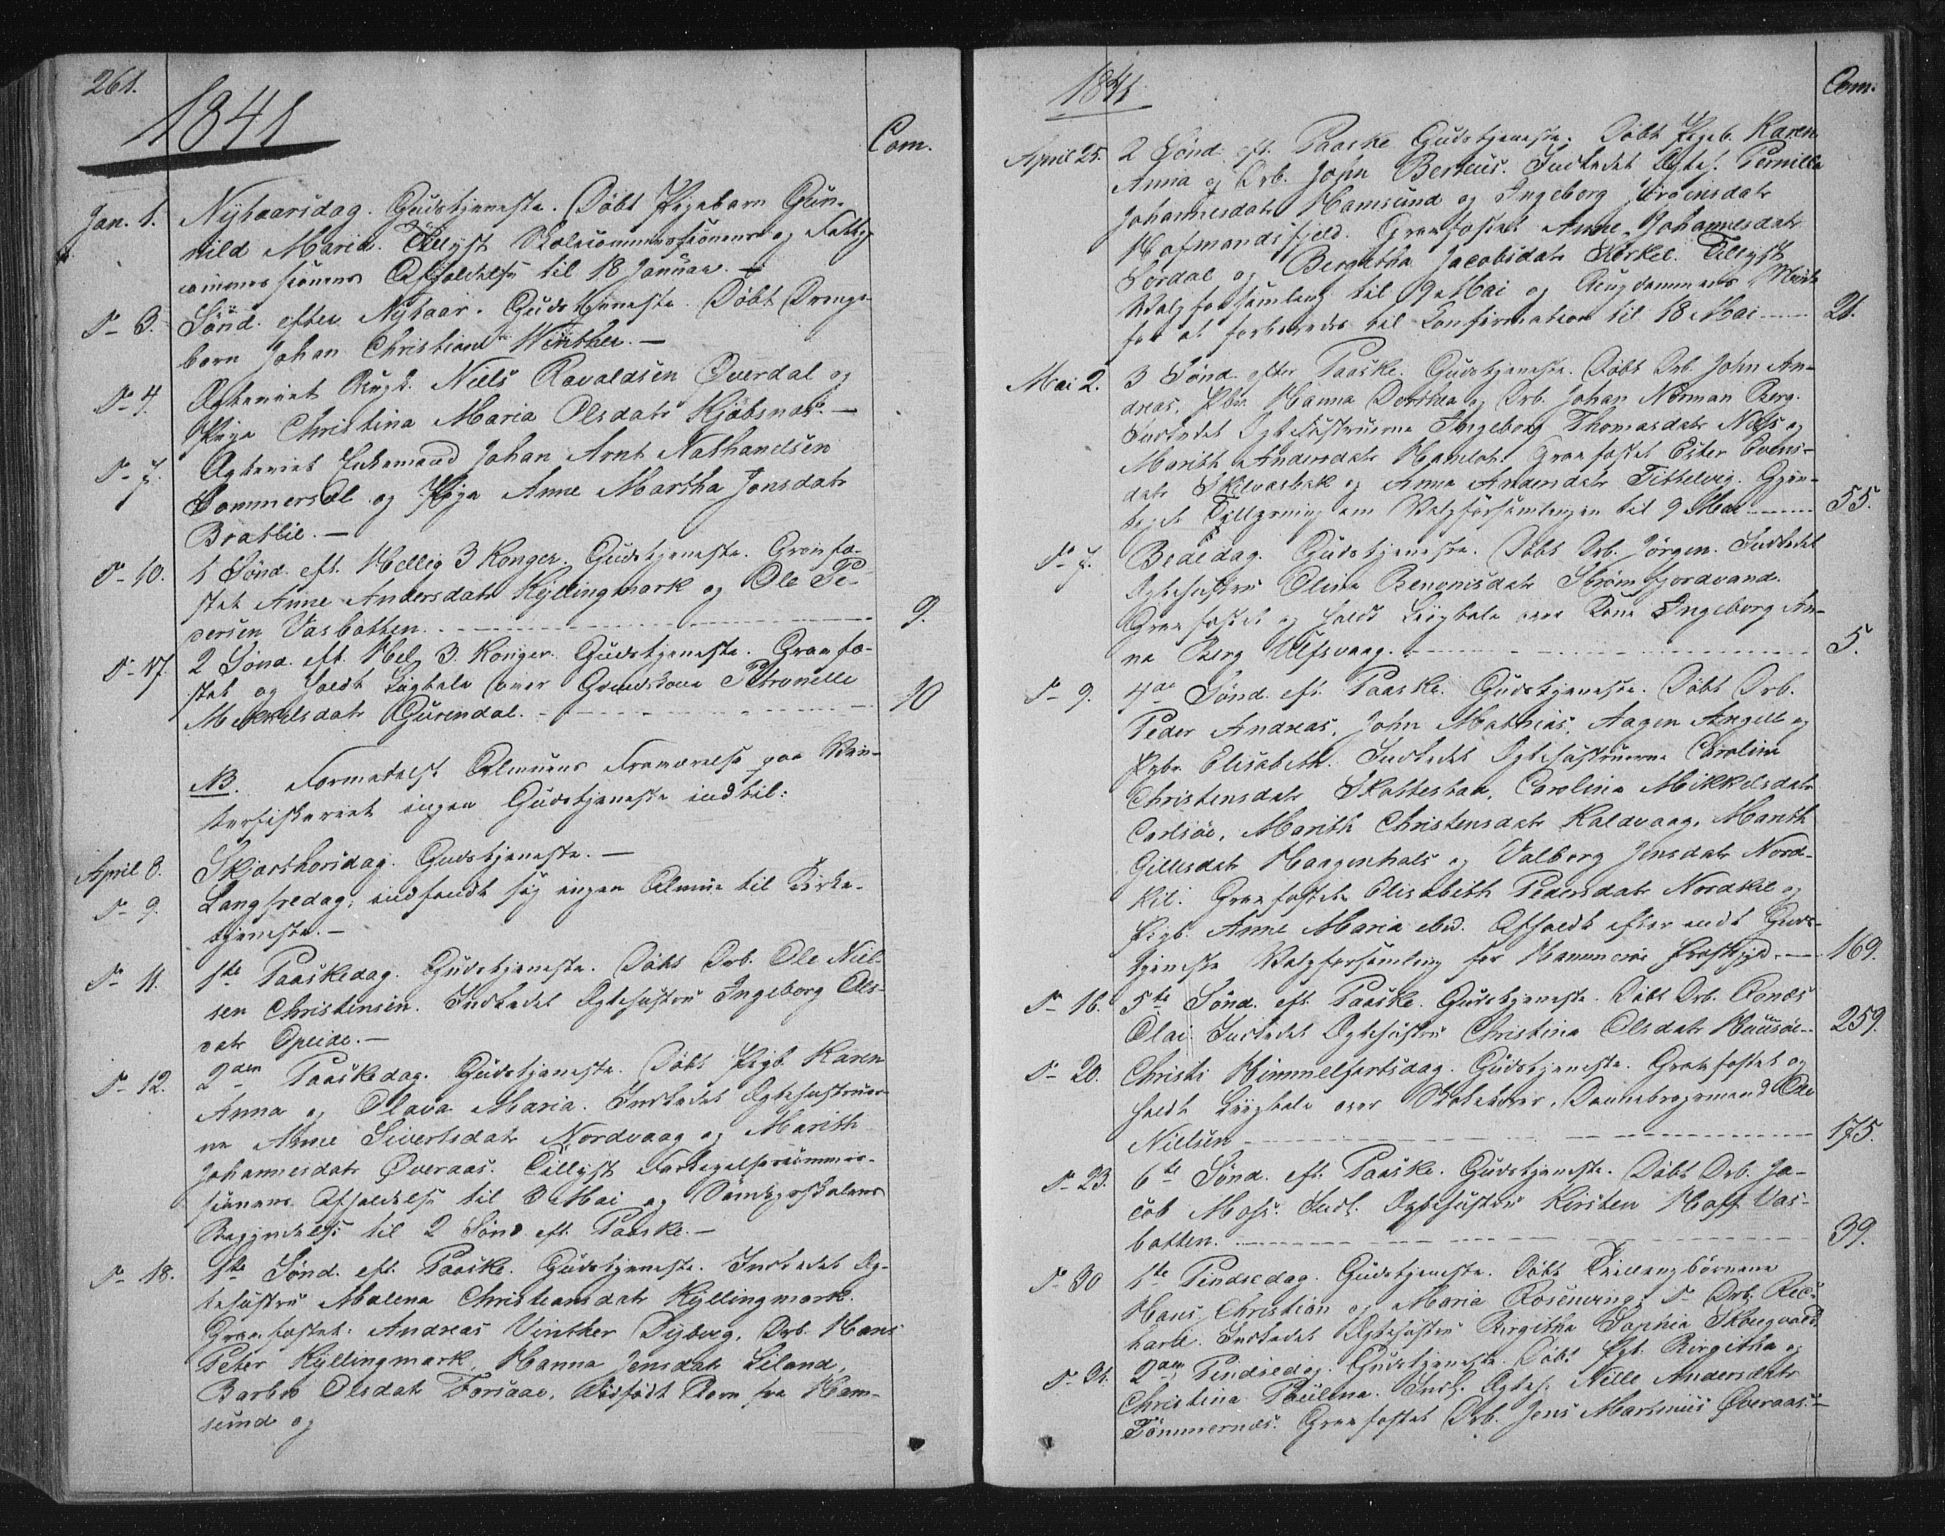 261.
1841
Com.
Jan. 1. Nytaarsdag. Gudstjeneste. Døbt Pigebarn Gun-
nild Maria. Tillyst Skolecommissionens og Fattig
commissionens Afholdelse til 18 Januar. —
D— 3. Sønd. efter Nytaar. Gudstjeneste. Døbt Drenge-
barn Johan Christian Winther. —
D— 4. Ægteviet Ungk. Niels Ravaldsen Øverdal og
Pige Christina Maria Olsdatr Kjøbsnæs. —
D— 7. Ægteviet Enkemand Johan Arnt Nathanielsen
Sommersæl og Pige Anne Martha Jonsdatr
Bratlie. —
D— 10. 1 Sønd. eft. Hellig 3 Konger. Gudstjeneste. Gravfæ-
stet Anne Andersdatr Kyllingmark og Ole Pe-
dersen Vasbotten. 9.
D— 17. 2 Sønd. eft. Hel. 3 Konger. Gudstjeneste. Gravfæ-
stet og holdt Liigtale over Petronelle
Mekkelsdatr Gurendal. 10
NB. Formedelst Almuens Fraværelse paa Vin-
terfiskeriet ingen Gudstjeneste indtil:
April 8. Skjærthorsdag. Gudstjeneste. —
D— 9. Langfredag, indfandt sig ingen Almue til Kirke-
tjeneste. —
D— 11. 1ste Paaskedag. Gudstjeneste. Døbt Drb. Ole Niel-
sen Christensen. Indledet Ægtehustru Ingeborg Ols-
datr Opeide. —
D— 12. 2den Paaskedag. Gudstjeneste. Døbt Pigb. Karen
Anna og Olava Maria. Indledet Ægtehustruer-
ne Anne Sivertsdatr Nordvaag og Marith
Johannesdatr Øveraas. Tillyst Forligelsescommis-
sionens Afholdelse til 3 Mai og
Begyndelse til 2 Sønd eft. Paaske. —
D— 18. 1ste Sønd. eft. Paaske. Gudstjeneste. Indledet Æg-
tehustru Malena Christiansdatr Kyllingmark.
Gravfæstet: Andreas Vinther Dybvig, Drb. Hans
Peter Kyllingmark, Hanna Jensdatr Liland,
Barbro Olsdatr Forsaae, Dødfødt Barn fra Ham-
sund og
1841
Com.
April 25. 2 Sønd. eft. Paaske Gudstjeneste. Døbt Pigeb. Karen
Anna og Drb. John Berteus. Indledet Ægteh. Pernille
Johannesdatr Hamsund og Ingeborg Jørgensdatr
Hofmandsfjeld. Gravfæstet Anne Johannesdatr
Sørdal og Bergitha Jacobsdatr Kirkel. Tillyst
Valgforsamling til 9 Mai og Ungdommens Møde
for at forberedes til Confirmation til 18 Mai 21.
Mai 2. 3 Sønd. efter Paaske. Gudstjeneste. Døbt Drb. John An-
dreas, Pbr. Hanna Dorthea og Drb. Johan Norman Berg.
Indledet Ægtehustruerne Ingeborg Thomasdatr Næs og
Marith Andersdatr Hamlot. Gravfæstet Ester Evens-
datr Skilvasbak og Anna Andersdatr Tittelvig. Gjen-
tagede Tillysning om Valgforsamlingen til 9 Mai 55.
D— 7. Bededag. Gudstjeneste. Døbt Drb. Jørgen. Indledet
Ægtehustru Olina Benonisdatr Strømfjordvand.
Gravfæstet og holdt Liigtale over Kone Ingeborg An-
na Berg Ulfsvaag. 5.
D— 9. 4de Sønd. eft. Paaske. Gudstjeneste. Døbt Drb.
Peder Andreas, John Mathias, Aagen Angell og
Pgbr. Elisabeth. Indledet Ægtehustruerne Caroline
Christensdatr Skottestad, Carolina Mikkelsdatr
Carlsøe, Marith Christensdatr Kaldvaag, Marith
Gillesdatr Haagenhals og Valborg Jensdatr Nord-
kil. Gravfæstet Elisabeth Pedersdatr Nordkil og
Pigb. Anne Maria ibid. Afholdt efter endt Guds-
tjeneste Valgforsamling for Hammerøe Præstgjd. 169.
D— 16. 5te Sønd. eft. Paaske. Gudstjeneste. Døbt Drb.
Olai. Indledet Ægtehustru Christina Olsdatr 259.
D— 20. Christi Himmelfartsdag. Gudstjeneste. Gravfæstet og
holdt Liigtale over Dannebrogsmand Ole
Nielsen 175.
D— 23. 6te Sønd. eft. Paaske. Gudstjeneste. Døbt Drb. Ja-
cob Mohs. Indl. Ægtehustru Kirsten Hoff Vas-
botten. 39.
D— 30 1ste Pindsedag. Gudstjeneste. Døbt Tvillingbørnene
Hans Christian og Maria Rosenving, D— Drb. Rec-
hard. Indledet Ægtehustru Birgitha Sophia Skougvold.
D— 31. 2den Pindsedag. Gudstjeneste. Døbt Pgb. Birgitha og
Christina Paulina. Indl. Ægteh. Nille Andersdatr
Tømmernæs. Gravfæstet Drb. Jens Martinus Øveraas. —